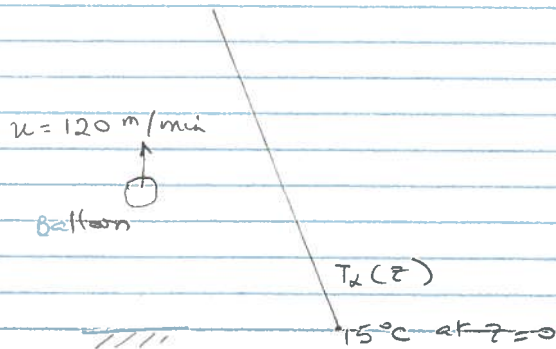 u = 120 m/min
Balloon
T∝(z)
15°C at z=0